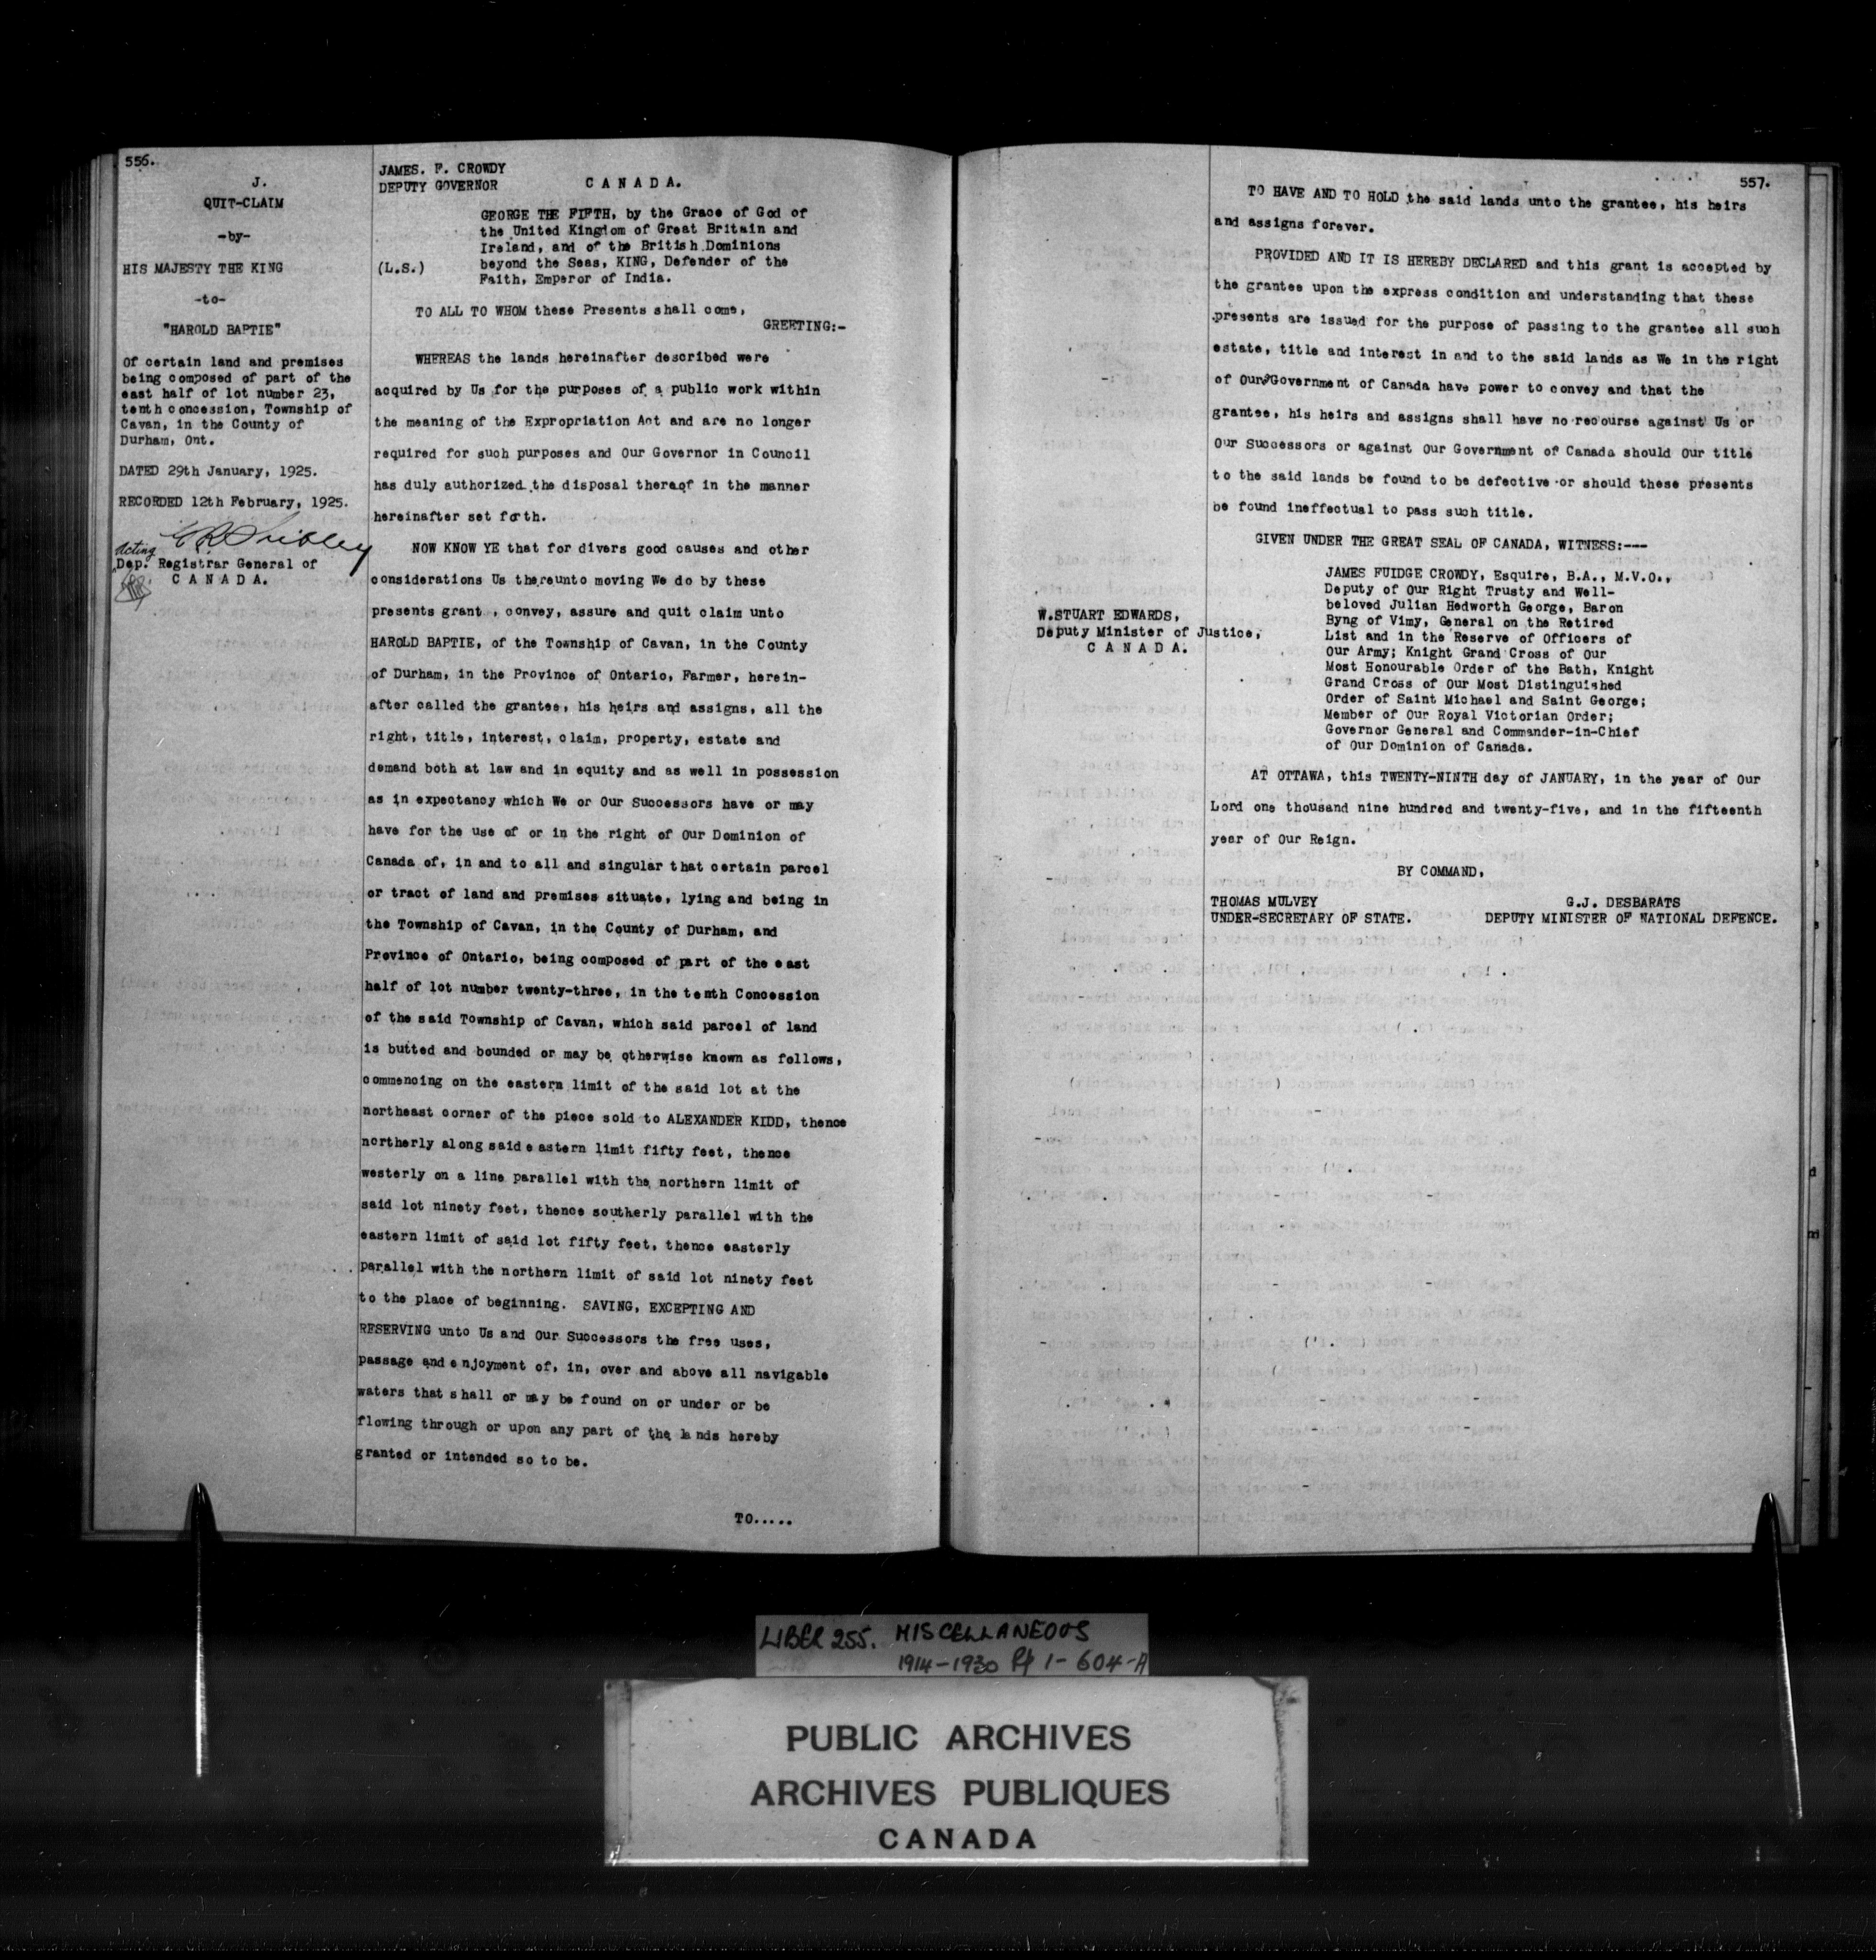 556.
J.
QUIT-CLAIM
-by-
HIS MAJESTY THE KING
-to-
"HAROLD BAPTIE"
Of certain land and premises
being composed of part of the
east half of lot number 23,
tenth concession, Township of
Cavan, in the County of
Durham, Ont.
DATED 29th January, 1925.
RECORDED 12th February, 1925.
Acting
Dep. Registrar General of
CANADA.
JAMES. F. CROWDY
DEPUTY GOVERNOR
CANADA.
GEORGE THE FIFTH, by the Grace of God of
the United Kingdom of Great Britain and
Ireland, and of the British Dominions
(L.S.) beyond the Seas, KING, Defender of the
Faith, Emperor of India.
TO ALL TO WHOM these Presents shall come,
GREETING:-
WHEREAS the lands hereinafter described were
acquired by Us for the purposes of a public work within
the meaning of the Expropriation Act and are no longer
required for such purposes and Our Governor in Council
has duly authorized the disposal thereof in the manner
hereinafter set forth.
NOW KNOW YE that for divers good causes and other
considerations Us thereunto moving We do by these
presents grant, convey, assure and quit claim unto
HAROLD BAPTIE, of the Township of Cavan, in the County
of Durham, in the Province of Ontario, Farmer, herein-
after called the grantee, his heirs and assigns, all the
right, title, interest, claim, property, estate and
demand both at law and in equity and as well in possession
as in expectancy which We or Our Successors have or may
have for the use of or in the right of Our Dominion of
Canada of, in and to all and singular that certain parcel
or tract of land and premises situate, lying and being in
the Township of Cavan, in the County of Durham, and
Province of Ontario, being composed of part of the east
half of lot number twenty-three, in the tenth Concession
of the said Township of Cavan, which said parcel of land
is butted and bounded or may be otherwise known as follows,
commencing on the eastern limit of the said lot at the
northeast corner of the piece sold to ALEXANDER KIDD, thence
northerly along said eastern limit fifty feet, thence
westerly on a line parallel with the northern limit of
said lot ninety feet, thence southerly parallel with the
eastern limit of said lot fifty feet, thence easterly
parallel with the northern limit of said lot ninety feet
to the place of beginning. SAVING, EXCEPTING AND
RESERVING unto Us and Our Successors the free uses,
passage and enjoyment of, in, over and above all navigable
waters that shall or may be found on or under or be
flowing through or upon any part of the lands hereby
granted or intended so to be.
TO.....
557.
TO HAVE AND TO HOLD the said lands unto the grantee, his heirs
and assigns forever.
PROVIDED AND IT IS HEREBY DECLARED and this grant is accepted by
the grantee upon the express condition and understanding that these
presents are issued for the purpose of passing to the grantee all such
estate, title and interest in and to the said lands as We in the right
of Our Government of Canada have power to convey and that the
grantee, his heirs and assigns shall have no recourse against Us or
Our Successors or against Our Government of Canada should Our title
to the said lands be found to be defective or should these presents
be found ineffectual to pass such title.
GIVEN UNDER THE GREAT SEAL OF CANADA, WITNESS:---
JAMES FUIDGE CROWDY, Esquire, B.A., M.V.O.,
Deputy of Our Right Trusty and Well-
beloved Julian Hedworth George, Baron
Byng of Vimy, General on the Retired
List and in the Reserve of Officers of
Our Army; Knight Grand Cross of Our
Most Honourable Order of the Bath, Knight
Grand Cross of Our Most Distinguished
Order of Saint Michael and Saint George;
Member of Our Royal Victorian Order;
Governor General and Commander-in-Chief
of Our Dominion of Canada.
W.STUART EDWARDS,
Deputy Minister of Justice,
CANADA.
AT OTTAWA, this TWENTY-NINTH day of JANUARY, in the year of Our
Lord one thousand nine hundred and twenty-five, and in the fifteenth
year of Our Reign.
BY COMMAND,
THOMAS MULVEY
UNDER-SECRETARY OF STATE.
G.J. DESBARATS
DEPUTY MINISTER OF NATIONAL DEFENCE.
LIBER 255. MISCELLANEOUS
1914-1930 Pt 1-604-A
PUBLIC ARCHIVES
ARCHIVES PUBLIQUES
CANADA